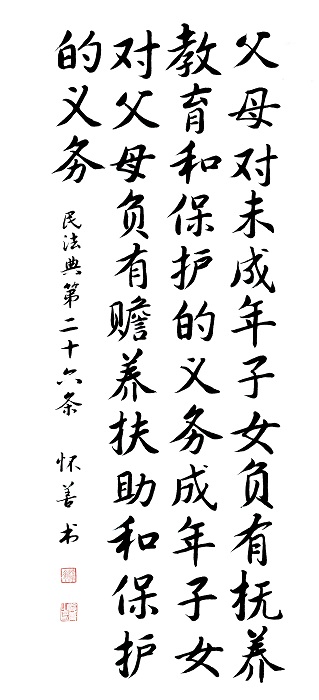 父母对未成年子女负有抚养
教育和保护的义务成年子女
对父母负有赡养扶助和保护
的义务
民法典第二十六条 怀善书